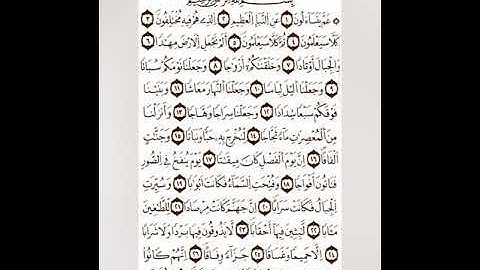 بِسْمِ ٱللَّهِ ٱلرَّحْمَٰنِ ٱلرَّحِيمِ
عَمَّ يَتَسَآءَلُونَ ١ عَنِ ٱلنَّبَإِ ٱلْعَظِيمِ ٢ ٱلَّذِى هُمْ فِيهِ مُخْتَلِفُونَ ٣
كَلَّا سَيَعْلَمُونَ ٤ ثُمَّ كَلَّا سَيَعْلَمُونَ ٥ أَلَمْ نَجْعَلِ ٱلْأَرْضَ مِهَٰدًا ٦
وَٱلْجِبَالَ أَوْتَادًا ٧ وَخَلَقْنَٰكُمْ أَزْوَٰجًا ٨ وَجَعَلْنَا نَوْمَكُمْ سُبَاتًا
٩ وَجَعَلْنَا ٱلَّيْلَ لِبَاسًا ١٠ وَجَعَلْنَا ٱلنَّهَارَ مَعَاشًا ١١ وَبَنَيْنَا
فَوْقَكُمْ سَبْعًا شِدَادًا ١٢ وَجَعَلْنَا سِرَاجًا وَهَّاجًا ١٣ وَأَنزَلْنَا
مِنَ ٱلْمُعْصِرَٰتِ مَآءً ثَجَّاجًا ١٤ لِّنُخْرِجَ بِهِۦ حَبًّا وَنَبَاتًا ١٥ وَجَنَّٰتٍ
أَلْفَافًا ١٦ إِنَّ يَوْمَ ٱلْفَصْلِ كَانَ مِيقَٰتًا ١٧ يَوْمَ يُنفَخُ فِى ٱلصُّورِ
فَتَأْتُونَ أَفْوَاجًا ١٨ وَفُتِحَتِ ٱلسَّمَآءُ فَكَانَتْ أَبْوَٰبًا ١٩ وَسُيِّرَتِ
ٱلْجِبَالُ فَكَانَتْ سَرَابًا ٢٠ إِنَّ جَهَنَّمَ كَانَتْ مِرْصَادًا ٢١ لِّلطَّٰغِينَ
مَـَٔابًا ٢٢ لَّٰبِثِينَ فِيهَآ أَحْقَابًا ٢٣ لَّا يَذُوقُونَ فِيهَا بَرْدًا وَلَا شَرَابًا
٢٤ إِلَّا حَمِيمًا وَغَسَّاقًا ٢٥ جَزَآءً وِفَاقًا ٢٦ إِنَّهُمْ كَانُوا۟